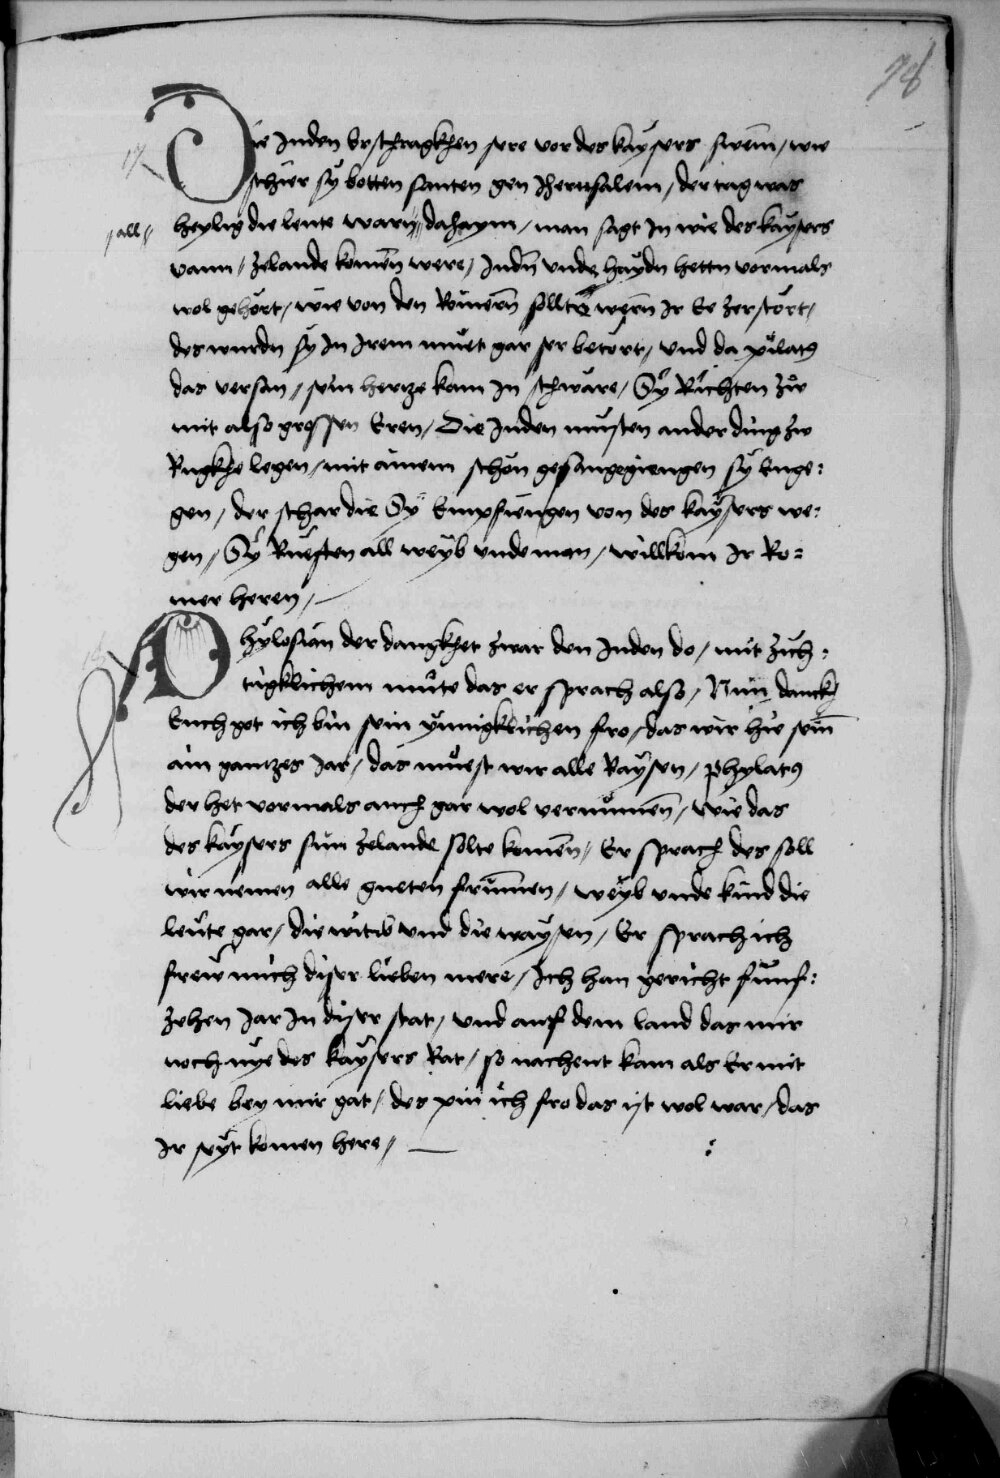 78
17
Die Juden erschragkhen sere vor des kaÿsers swein / wie
schier sÿ botten santen gen Jherusalem / der tag was
all heylig die leute warn dahaym / man sagt Jn wie des kaÿsers
vann / zelande komen̄ were / Judn̄ vnde haÿdn hettn vormals
wol gehört / wie von den Römern̄ solltn wern̄ Jr Ee zerstört /
des wurdn sÿ Jn Jrem muet gar ser betört / vnd da pilat9
das versan / sein hertze kam Jn schwäre / Sÿ Richten zů
mit also grossen Eren / Die Juden musten ander ding zw
Rugkhe legen / mit ainem schön gesange giengen sÿ Enge:
gen / der schar die Sÿ Empfiengen von des kaÿsers we:
gen / Sÿ Rueften all weÿb vnde man / willkom Jr Ro=
mer heren /
Phÿlosian der dangkhet zwar den Juden do / mit züch:
tigklichem muete das er sprach also / Nun danckh
Euch got ich bin sein ÿnnigklichen fro / das wir hie sein̄
ain gantzes Jar / das muest wir alle Raÿsen / phylat9
der het vormals auch gar wol vernumen̄ / wie das
des kaÿsers sun zelande solte komen̄ / Er sprach des soll
wir nemen alle gueten frumen̄ / weÿb vnde kind die
leute gar / die witib vnd die waÿsen / Er sprach ich
frew mich diser lieben mere / Jch han gericht funf:
zehen Jar Jn diser stat / vnd auf dem land das mir
noch nye des kaÿsers Rat / so nachent kam als Er mit
liebe bey mir gat / des pin ich fro das ist wol war / das
Jr seÿt komen here /